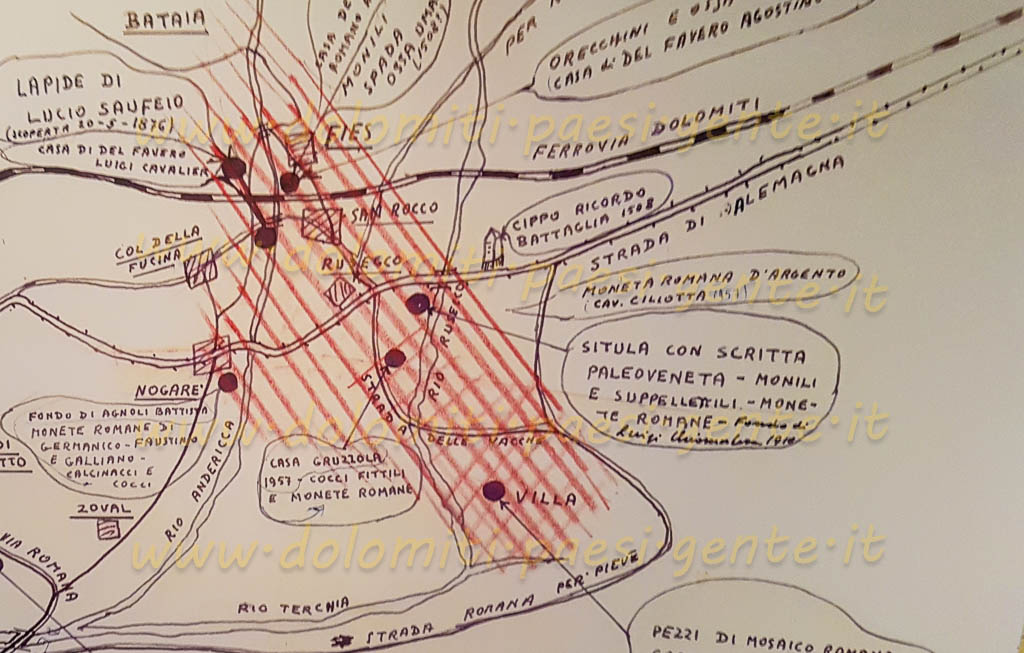 BATAIA
CASA DE
ROMANO A
MONILI
SPADA
OSSA UMA
(1508?)
PER
ORECCHINI E OSSA
(CASA di DEL FAVERO AGOSTINO
LAPIDE DI
LUCIO SAUFEIO
(SCOPERTA 20-5-1876)
CASA DI DEL FAVERO
LUIGI CAVALIER
FIES
FERROVIA DOLOMITI
SAN ROCCO
CIPPO RICORDO
BATTAGLIA 1508
STRADA DI ALEMAGNA
COL DELLA
FUCINA
RUSECCO
MONETA ROMANA D'ARGENTO
(CAV. CILIOTTA 1951)
RIO RUSECCO
SITULA CON SCRITTA
PALEOVENETA - MONILI
E SUPPELLETTILI - MONE-
TE ROMANE - Fondo di
Luigi
NOGARE'
FONDO DI AGNOLI BATTISTA
MONETE ROMANE DI
GERMANICO - FAUSTINO
E GALLIANO -
CALCINACCI E
COCCI
DI
TTO
STRADA DELLE VACCHE
CASA GRUZZOLA
1957 - COCCI FITTILI
E MONETE ROMANE
VILLA
ZOVAL
RIO ANDERICCA
VIA ROMANA
RIO TERCHIA
STRADA ROMANA PER PIEVE
PEZZI DI MOSAICO ROMANO
www·dolomiti·paesi·gente·it
www·dolomiti·paesi·gente·it
www·dolomiti·paesi·gente·it
www·dolomiti·paesi·gente·it